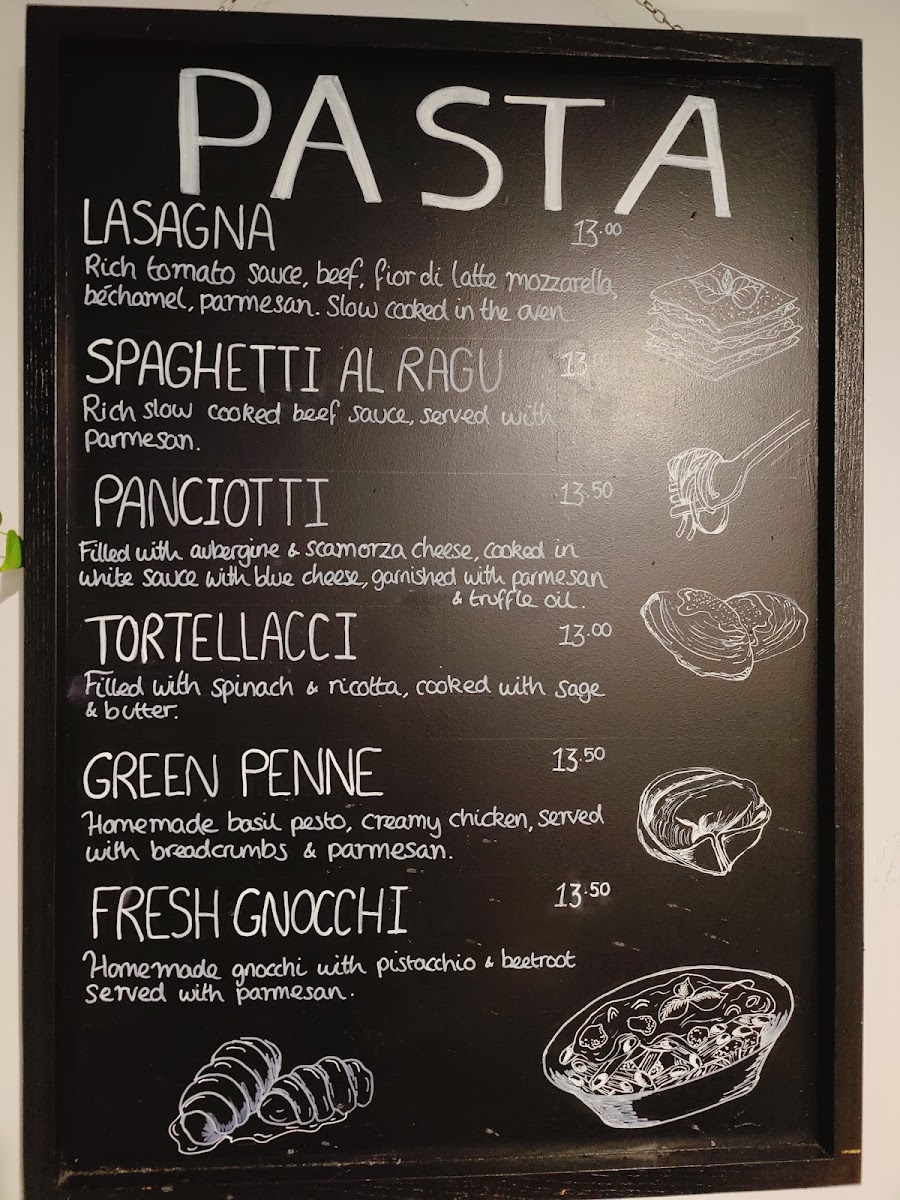 PASTA
LASAGNA 13.00
Rich tomato sauce, beef, fior di latte mozzarella,
béchamel, parmesan. Slow cooked in the oven.
SPAGHETTI AL RAGU 13
Rich slow cooked beef sauce, served with
parmesan.
PANCIOTTI 13.50
Filled with aubergine & scamorza cheese, cooked in
white sauce with blue cheese, garnished with parmesan
& truffle oil.
TORTELLACCI 13.00
Filled with spinach & ricotta, cooked with sage
& butter.
GREEN PENNE 13.50
Homemade basil pesto, creamy chicken, served
with breadcrumbs & parmesan.
FRESH GNOCCHI 13.50
Homemade gnocchi with pistacchio & beetroot
served with parmesan.